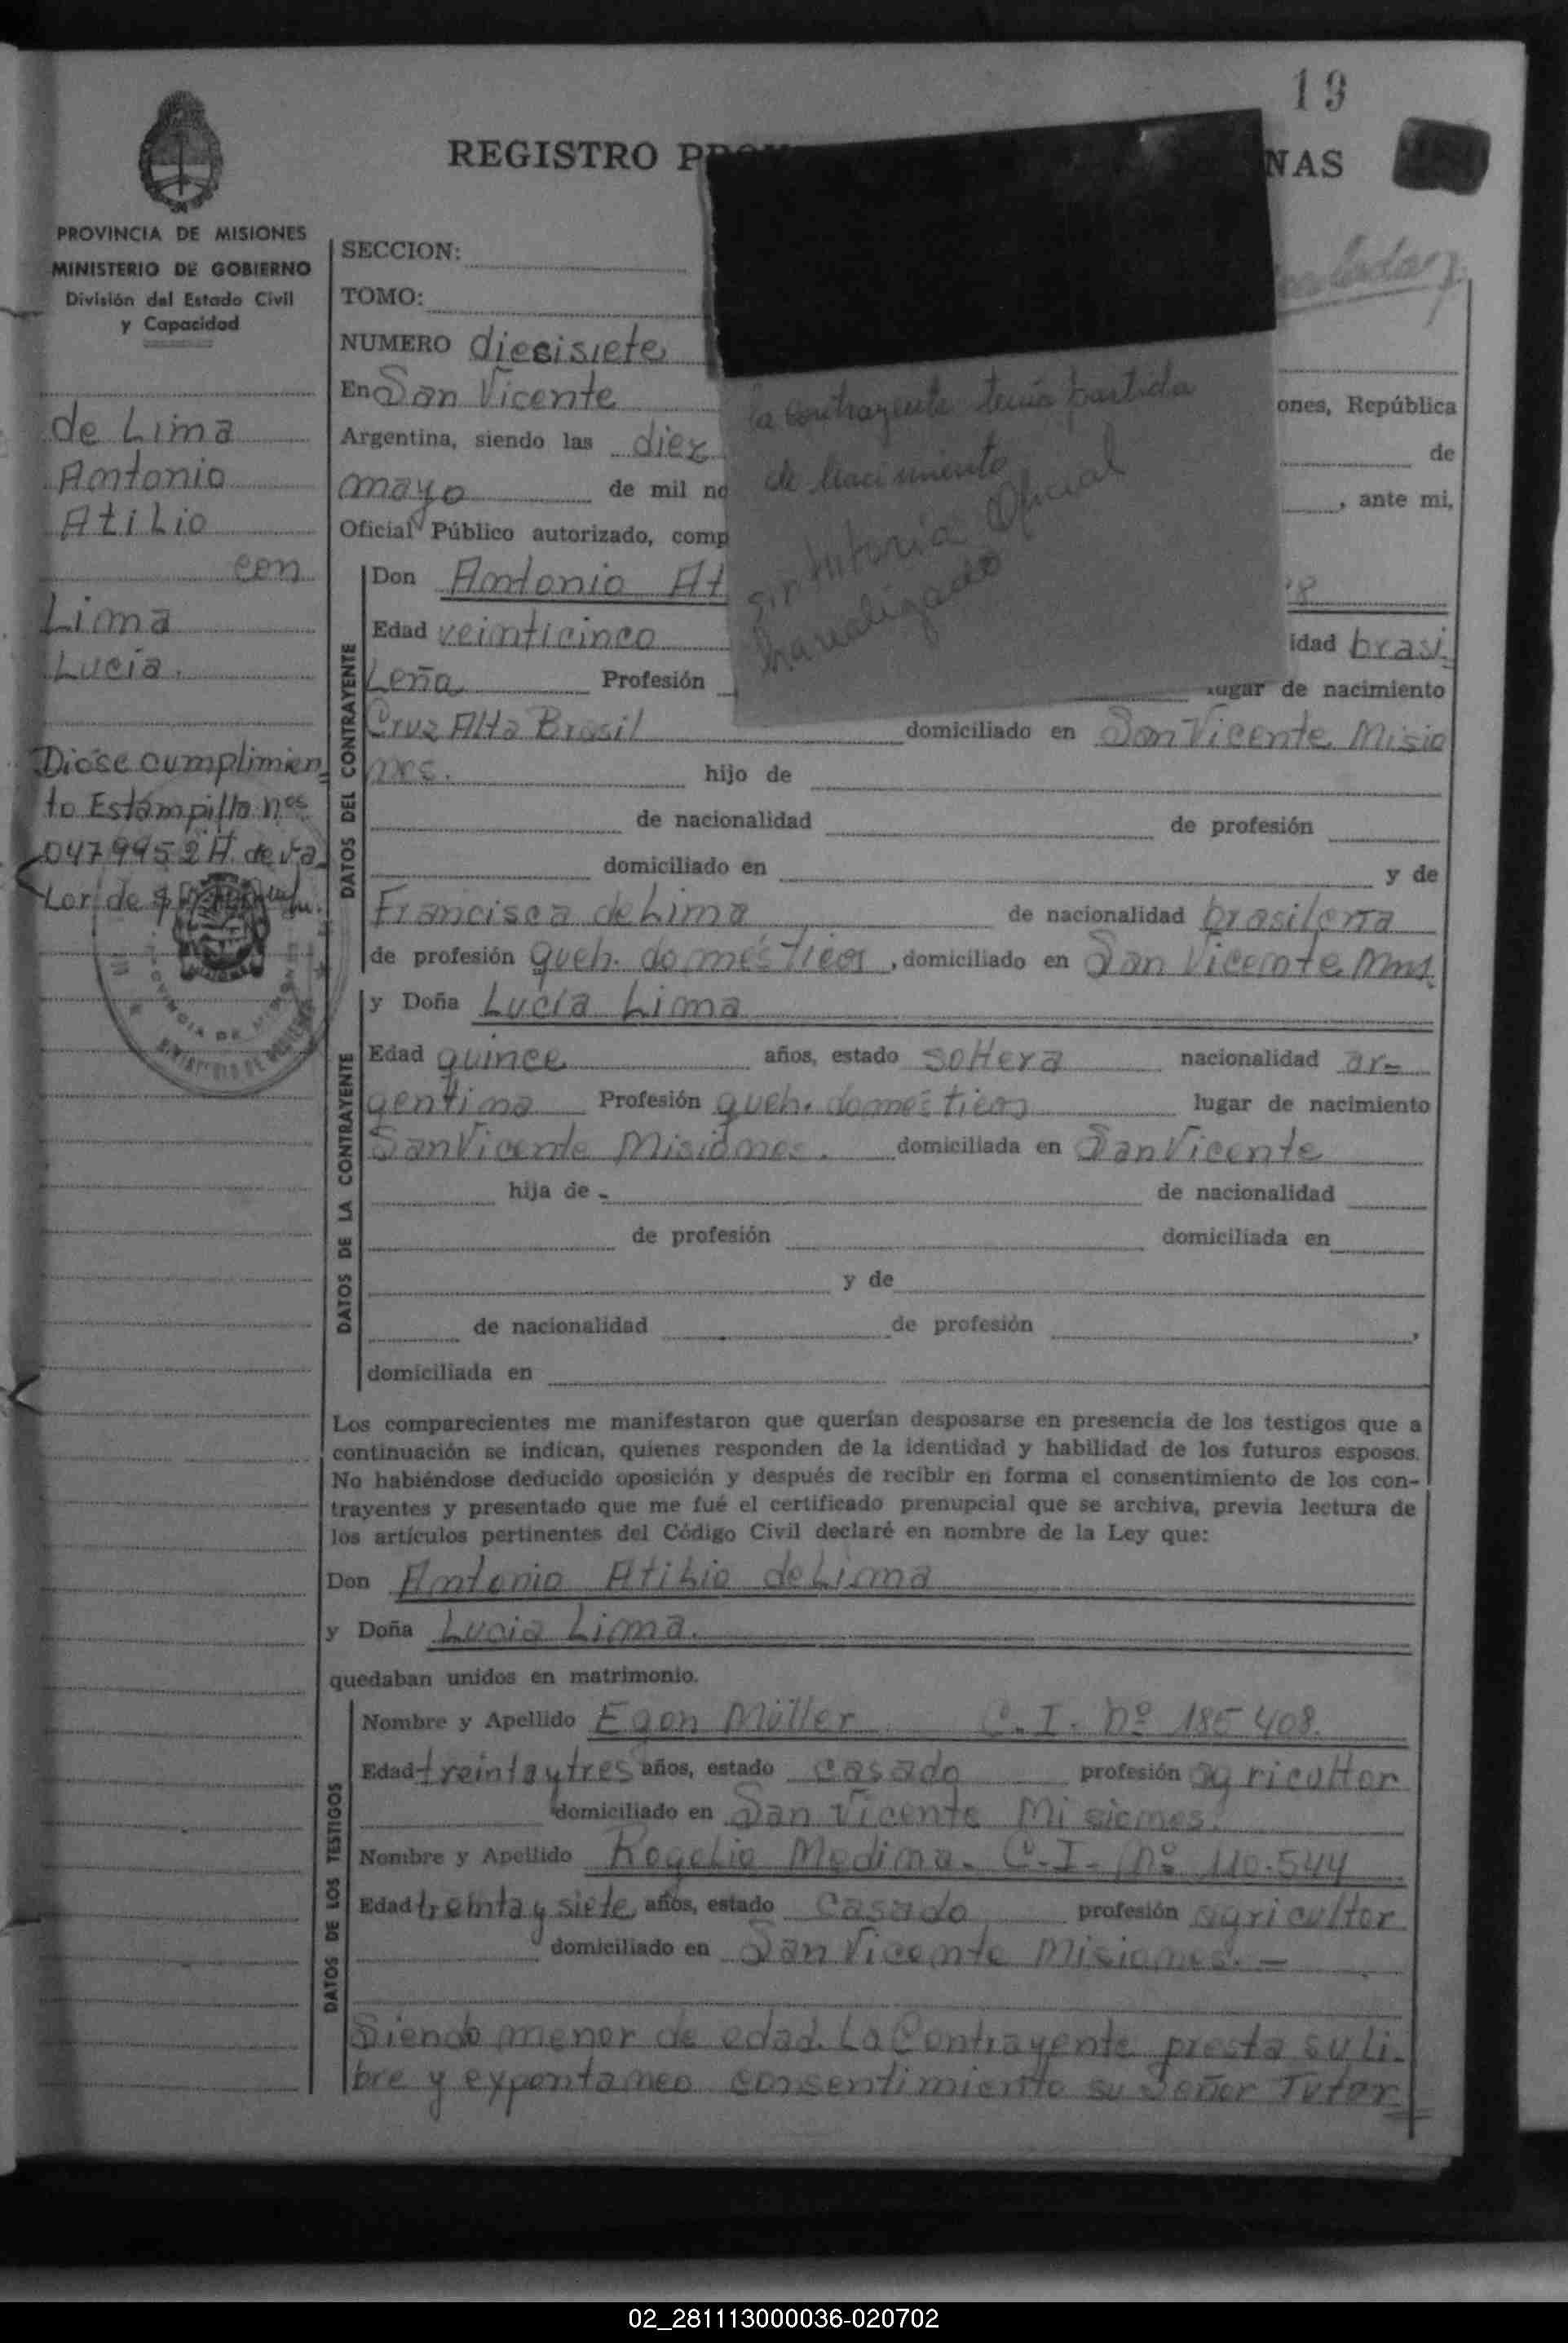 19
REGISTRO
NAS
PROVINCIA DE MISIONES
MINISTERIO DE GOBIERNO
División del Estado Civil
y Capacidad
de Lima
Antonio
Atilio
con
Lima
Lucía.
Diose cumplimien
to Estampilla nos
0479952 H. de va
lor de $
SECCION:
TOMO:
NUMERO diecisiete
En San Vicente
ones, República
Argentina, siendo las diez
de
mayo de mil no
, ante mi,
Oficial Público autorizado, comp
la contrayente tenía partida
de nacimiento
Oficial
Don Antonio At
Edad veinticinco
idad brasi
leña Profesión
lugar de nacimiento
Cruz Alta Brasil domiciliado en San Vicente Misio
nes. hijo de
de nacionalidad de profesión
domiciliado en y de
Francisca de Lima de nacionalidad brasileña
de profesión queh. domésticos, domiciliado en San Vicente Mnes.
DATOS DEL CONTRAYENTE
y Doña Lucía Lima
Edad quince años, estado soltera nacionalidad ar=
gentina Profesión queh. domésticos lugar de nacimiento
San Vicente Misiones. domiciliada en San Vicente
hija de - de nacionalidad
de profesión domiciliada en
y de
de nacionalidad de profesión ,
domiciliada en
DATOS DE LA CONTRAYENTE
Los comparecientes me manifestaron que querían desposarse en presencia de los testigos que a
continuación se indican, quienes responden de la identidad y habilidad de los futuros esposos.
No habiéndose deducido oposición y después de recibir en forma el consentimiento de los con-
trayentes y presentado que me fué el certificado prenupcial que se archiva, previa lectura de
los artículos pertinentes del Código Civil declaré en nombre de la Ley que:
Don Antonio Atilio de Lima
y Doña Lucia Lima.
quedaban unidos en matrimonio.
Nombre y Apellido Egon Müller C. I. nº 185 408.
Edad treinta y tres años, estado casado profesión agricultor
domiciliado en San Vicente Misiones.
Nombre y Apellido Rogelio Medina. C. I. nº 110.544
Edad treinta y siete años, estado casado profesión agricultor
domiciliado en San Vicente Misiones. -
DATOS DE LOS TESTIGOS
Siendo menor de edad. La Contrayente presta su li-
bre y expontaneo consentimiento su Señor Tutor
02_281113000036-020702